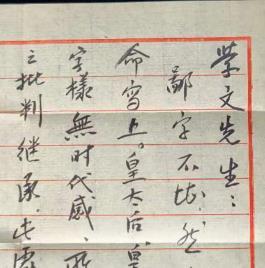 学文先生：
鄙字不恭，然
命写上。皇太后、皇
字樣無时代感、所
之批判继承，